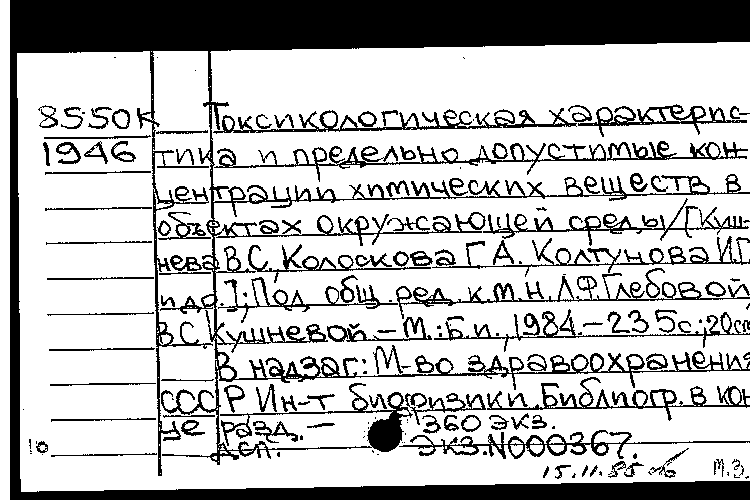 8550К Токсикологическая характерис-
1946 тика и предельно допустимые кон-
центрации химических веществ в
объектах окружающей среды/[Куш-
нева В.С., Колоскова Г.А., Колтунова И.Г.
и др.]; Под общ. ред. к.м.н. Л.Ф.Глебовой
В.С.Кушневой.–М.: Б.и., 1984.–235с.;20см
В надзаг.: М-во здравоохранения
СССР Ин-т биофизики. Библиогр. в кон
це разд. – 360 экз.
10 ДСП. Экз.N000367.
15.11.85 М.З.